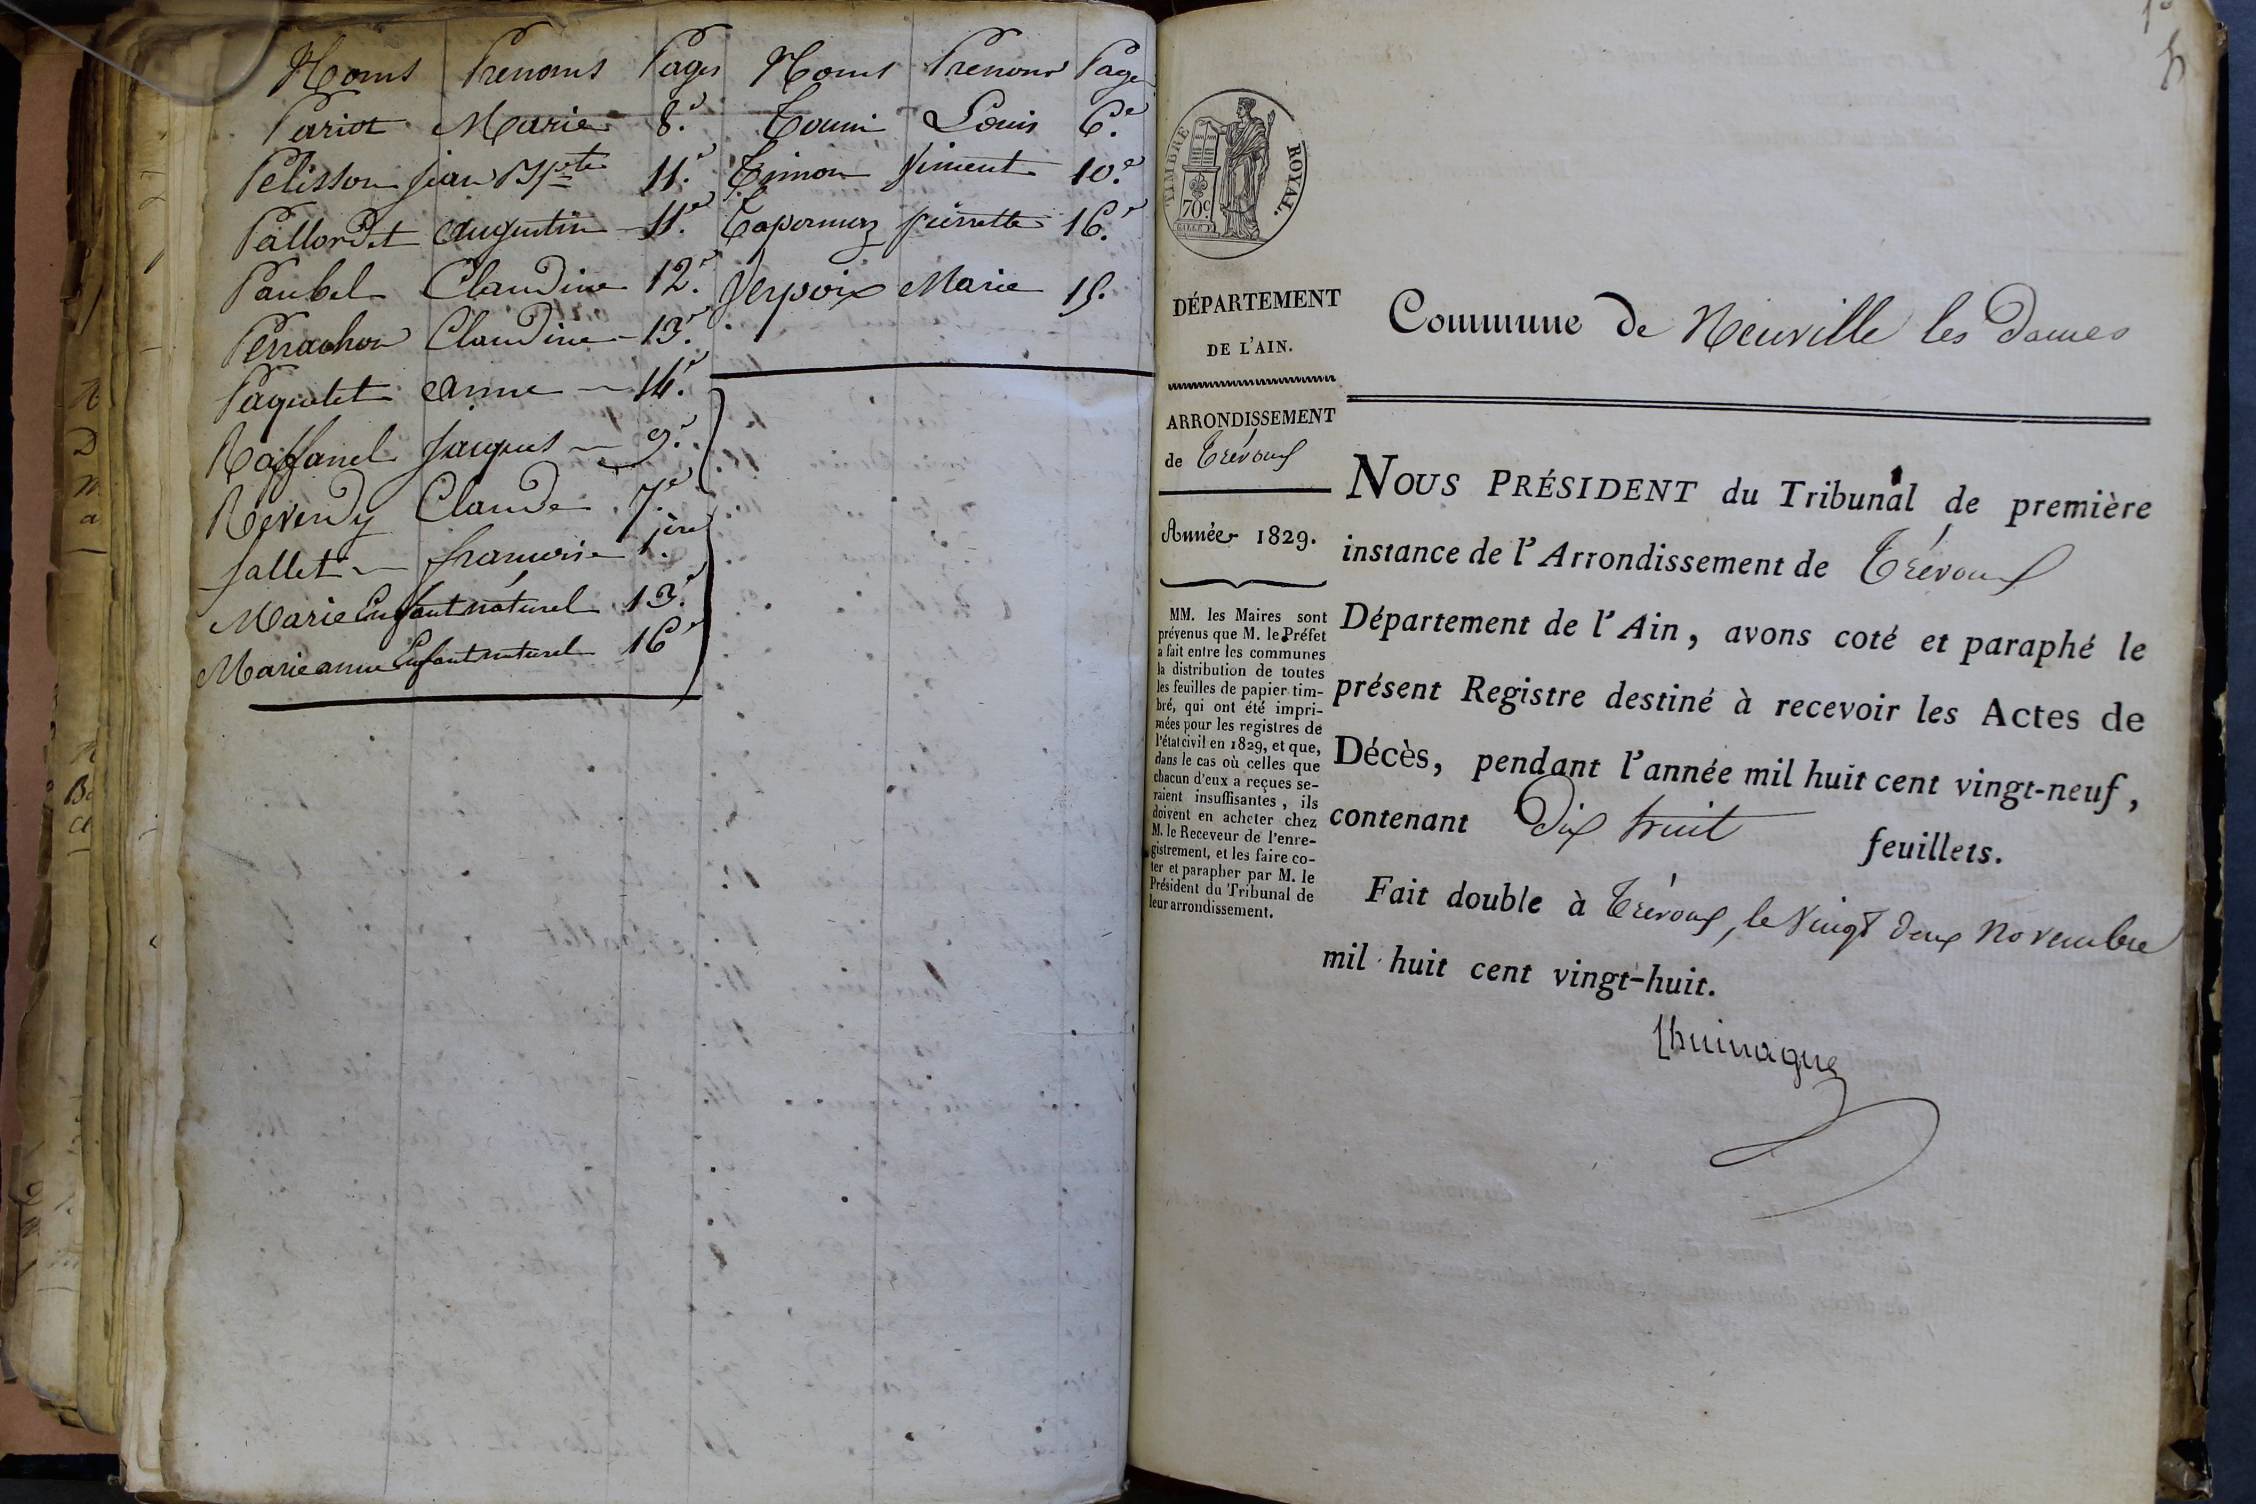 Noms Prenoms Pages
Pariot Marie 8.e
Pelisson jean Bpte 11.e
Pallordet augustin 11.e
Paubel Claudine 12.e
Perrachon Claudine 13.e
Paquetet anne 14.e
Raffanel jacques 9.e
Reverdy Claude 7.e
Sallet francoise 1.ère
Marie Enfant naturel 13.e
Marieanne Enfant naturel 16e
Noms Prenoms Pages
Louis 6.e
Timon Vincent 10.e
pierrette 16.e
Verpoix Marie 15.
TIMBRE ROYAL.
70c.
DÉPARTEMENT
DE L'AIN.
ARRONDISSEMENT
de Trévoux
Année 1829.
MM. les Maires sont
prévenus que M. le Préfet
a fait entre les communes
la distribution de toutes
les feuilles de papier tim-
bré, qui ont été impri-
mées pour les registres de
l'état civil en 1829, et que,
dans le cas où celles que
chacun d'eux a reçues se-
raient insuffisantes, ils
doivent en acheter chez
M. le Receveur de l'enre-
gistrement, et les faire co-
ter et parapher par M. le
Président du Tribunal de
leur arrondissement.
Commune de Neuville les Dames
NOUS PRÉSIDENT du Tribunal de première
instance de l'Arrondissement de Trévoux
Département de l'Ain, avons coté et paraphé le
présent Registre destiné à recevoir les Actes de
Décès, pendant l'année mil huit cent vingt-neuf,
contenant Dix huit feuillets.
Fait double à Trévoux, le Vingt deux Novembre
mil huit cent vingt-huit.